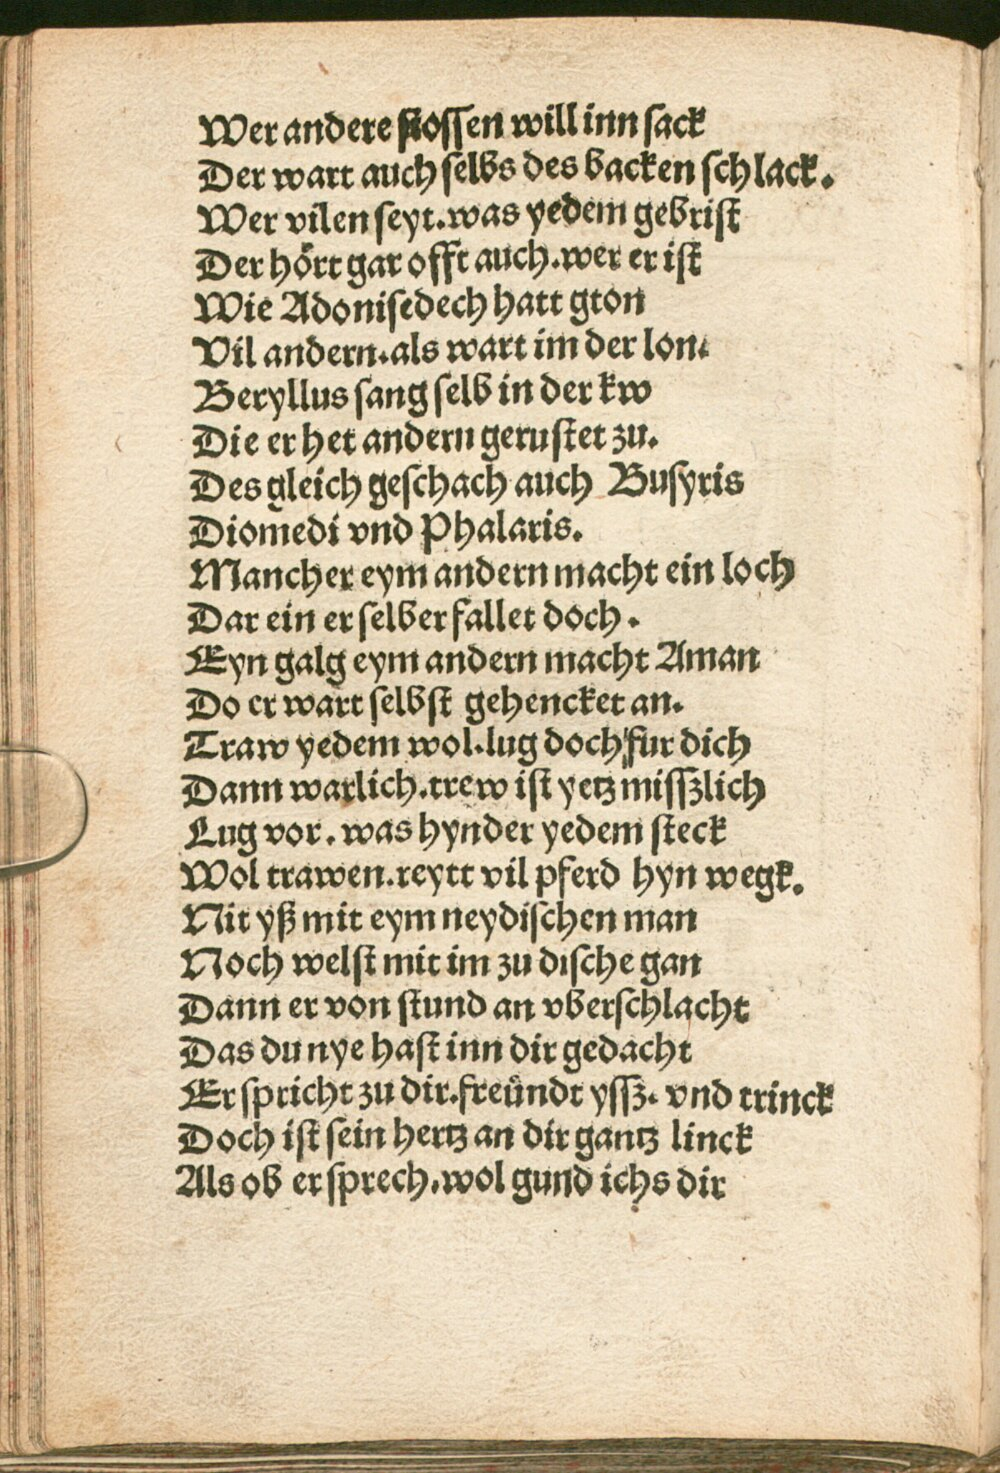 Wer andere ſtoſſen will inn ſack
Der wart auch ſelbs des backen ſchlack.
Wer vilen ſeyt.was yedem gebriſt
Der hoͤrt gar offt auch.wer er iſt
Wie Adoniſedech hatt gton
Vil andern.als wart im der lon.
Beryllus ſang ſelb in der kw
Die er het andern geruſtet zu.
Des gleich geſchach auch Buſyris
Diomedi vnd Phalaris.
Mancher eym andern macht ein loch
Dar ein er ſelber fallet doch.
Eyn galg eym andern macht Aman
Do er wart ſelbſt gehencket an.
Traw yedem wol.lug doch fur dich
Dann warlich.trew iſt yetz miſſzlich
Lug vor. was hynder yedem ſteck
Wol trawen.reytt vil pferd hyn wegk.
Nit yß mit eym neydiſchen man
Noch welſt mit im zu diſche gan
Dann er von ſtund an vberſchlacht
Das du nye haſt inn dir gedacht
Er ſpricht zu dir.freündt yſſz. vnd trinck
Doch iſt ſein hertz an dir gantz linck
Als ob er ſprech.wol gund ichs dir